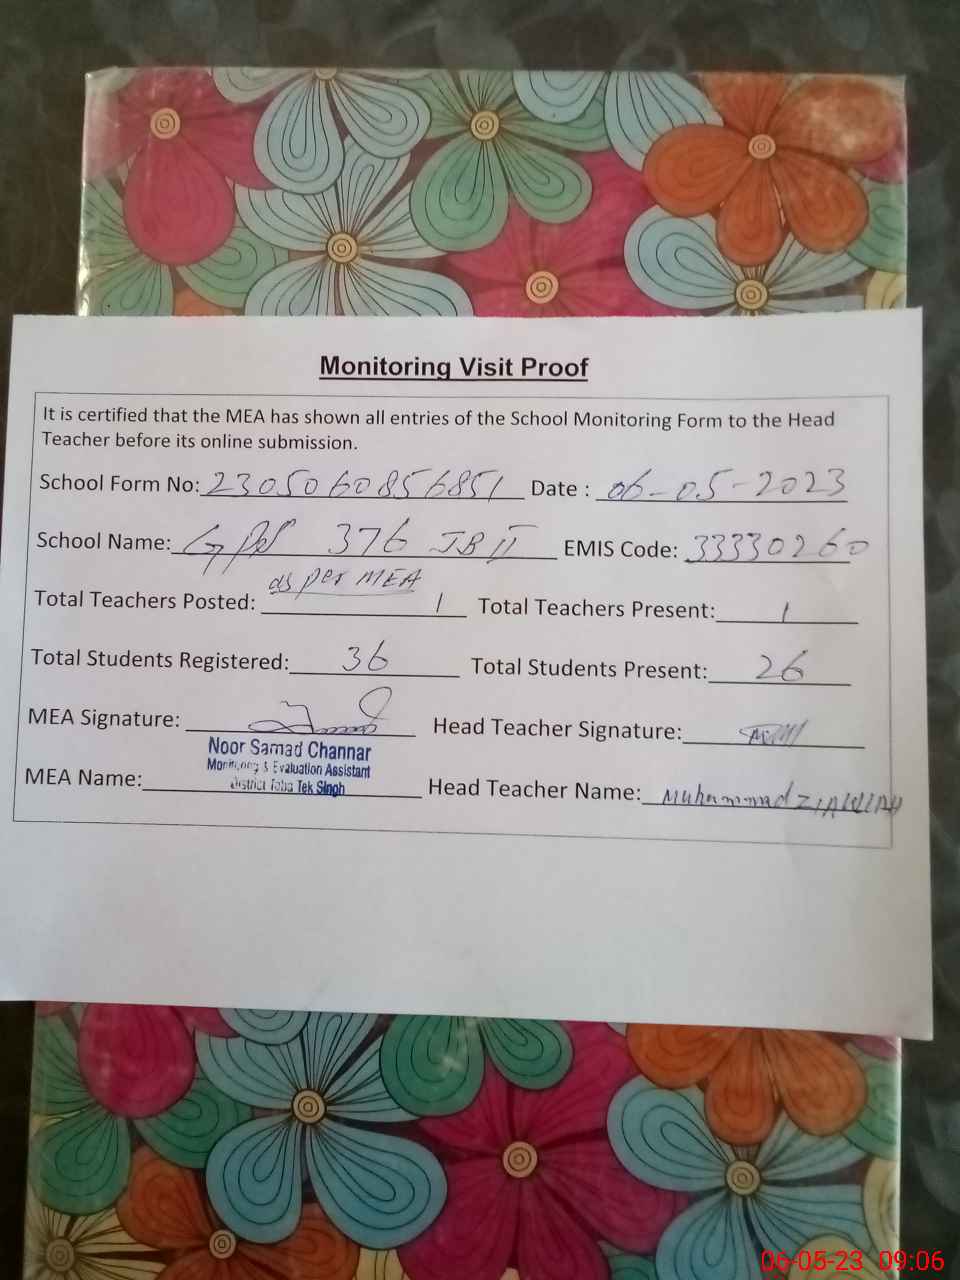 Monitoring Visit Proof
It is certified that the MEA has shown all entries of the School Monitoring Form to the Head
Teacher before its online submission.
School Form No: 2305060856851 Date : 06-05-2023
School Name: 376 JB II EMIS Code: 33330260
as per MEA
Total Teachers Posted: 1 Total Teachers Present: 1
Total Students Registered: 36 Total Students Present: 26
MEA Signature: Head Teacher Signature:
Noor Samad Channar
Monitoring & Evaluation Assistant
District Toba Tek Singh
MEA Name: Head Teacher Name: Muhammad
06-05-23 09:06